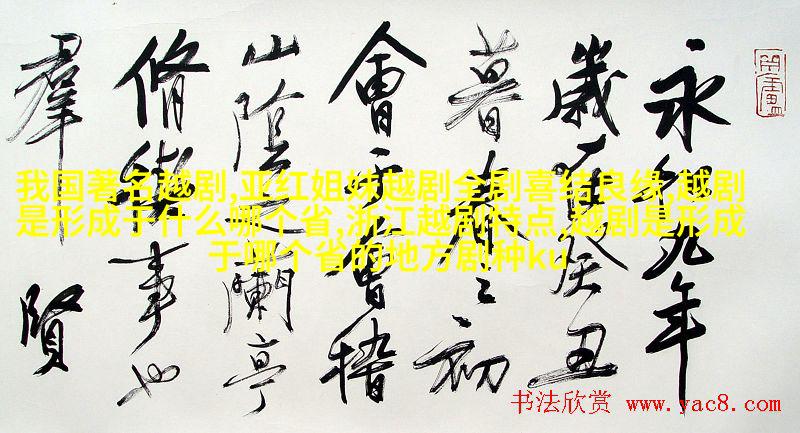 永和九年
歲在癸丑
暮春之初
會于會稽
山陰之蘭亭
脩禊事也
羣賢
我国著名越剧,亚红姐妹越剧全剧喜结良缘,越剧
是形成于什么哪个省,浙江越剧特点,越剧是形成
于哪个省的地方剧种ku
书法欣赏 www.yac8.com